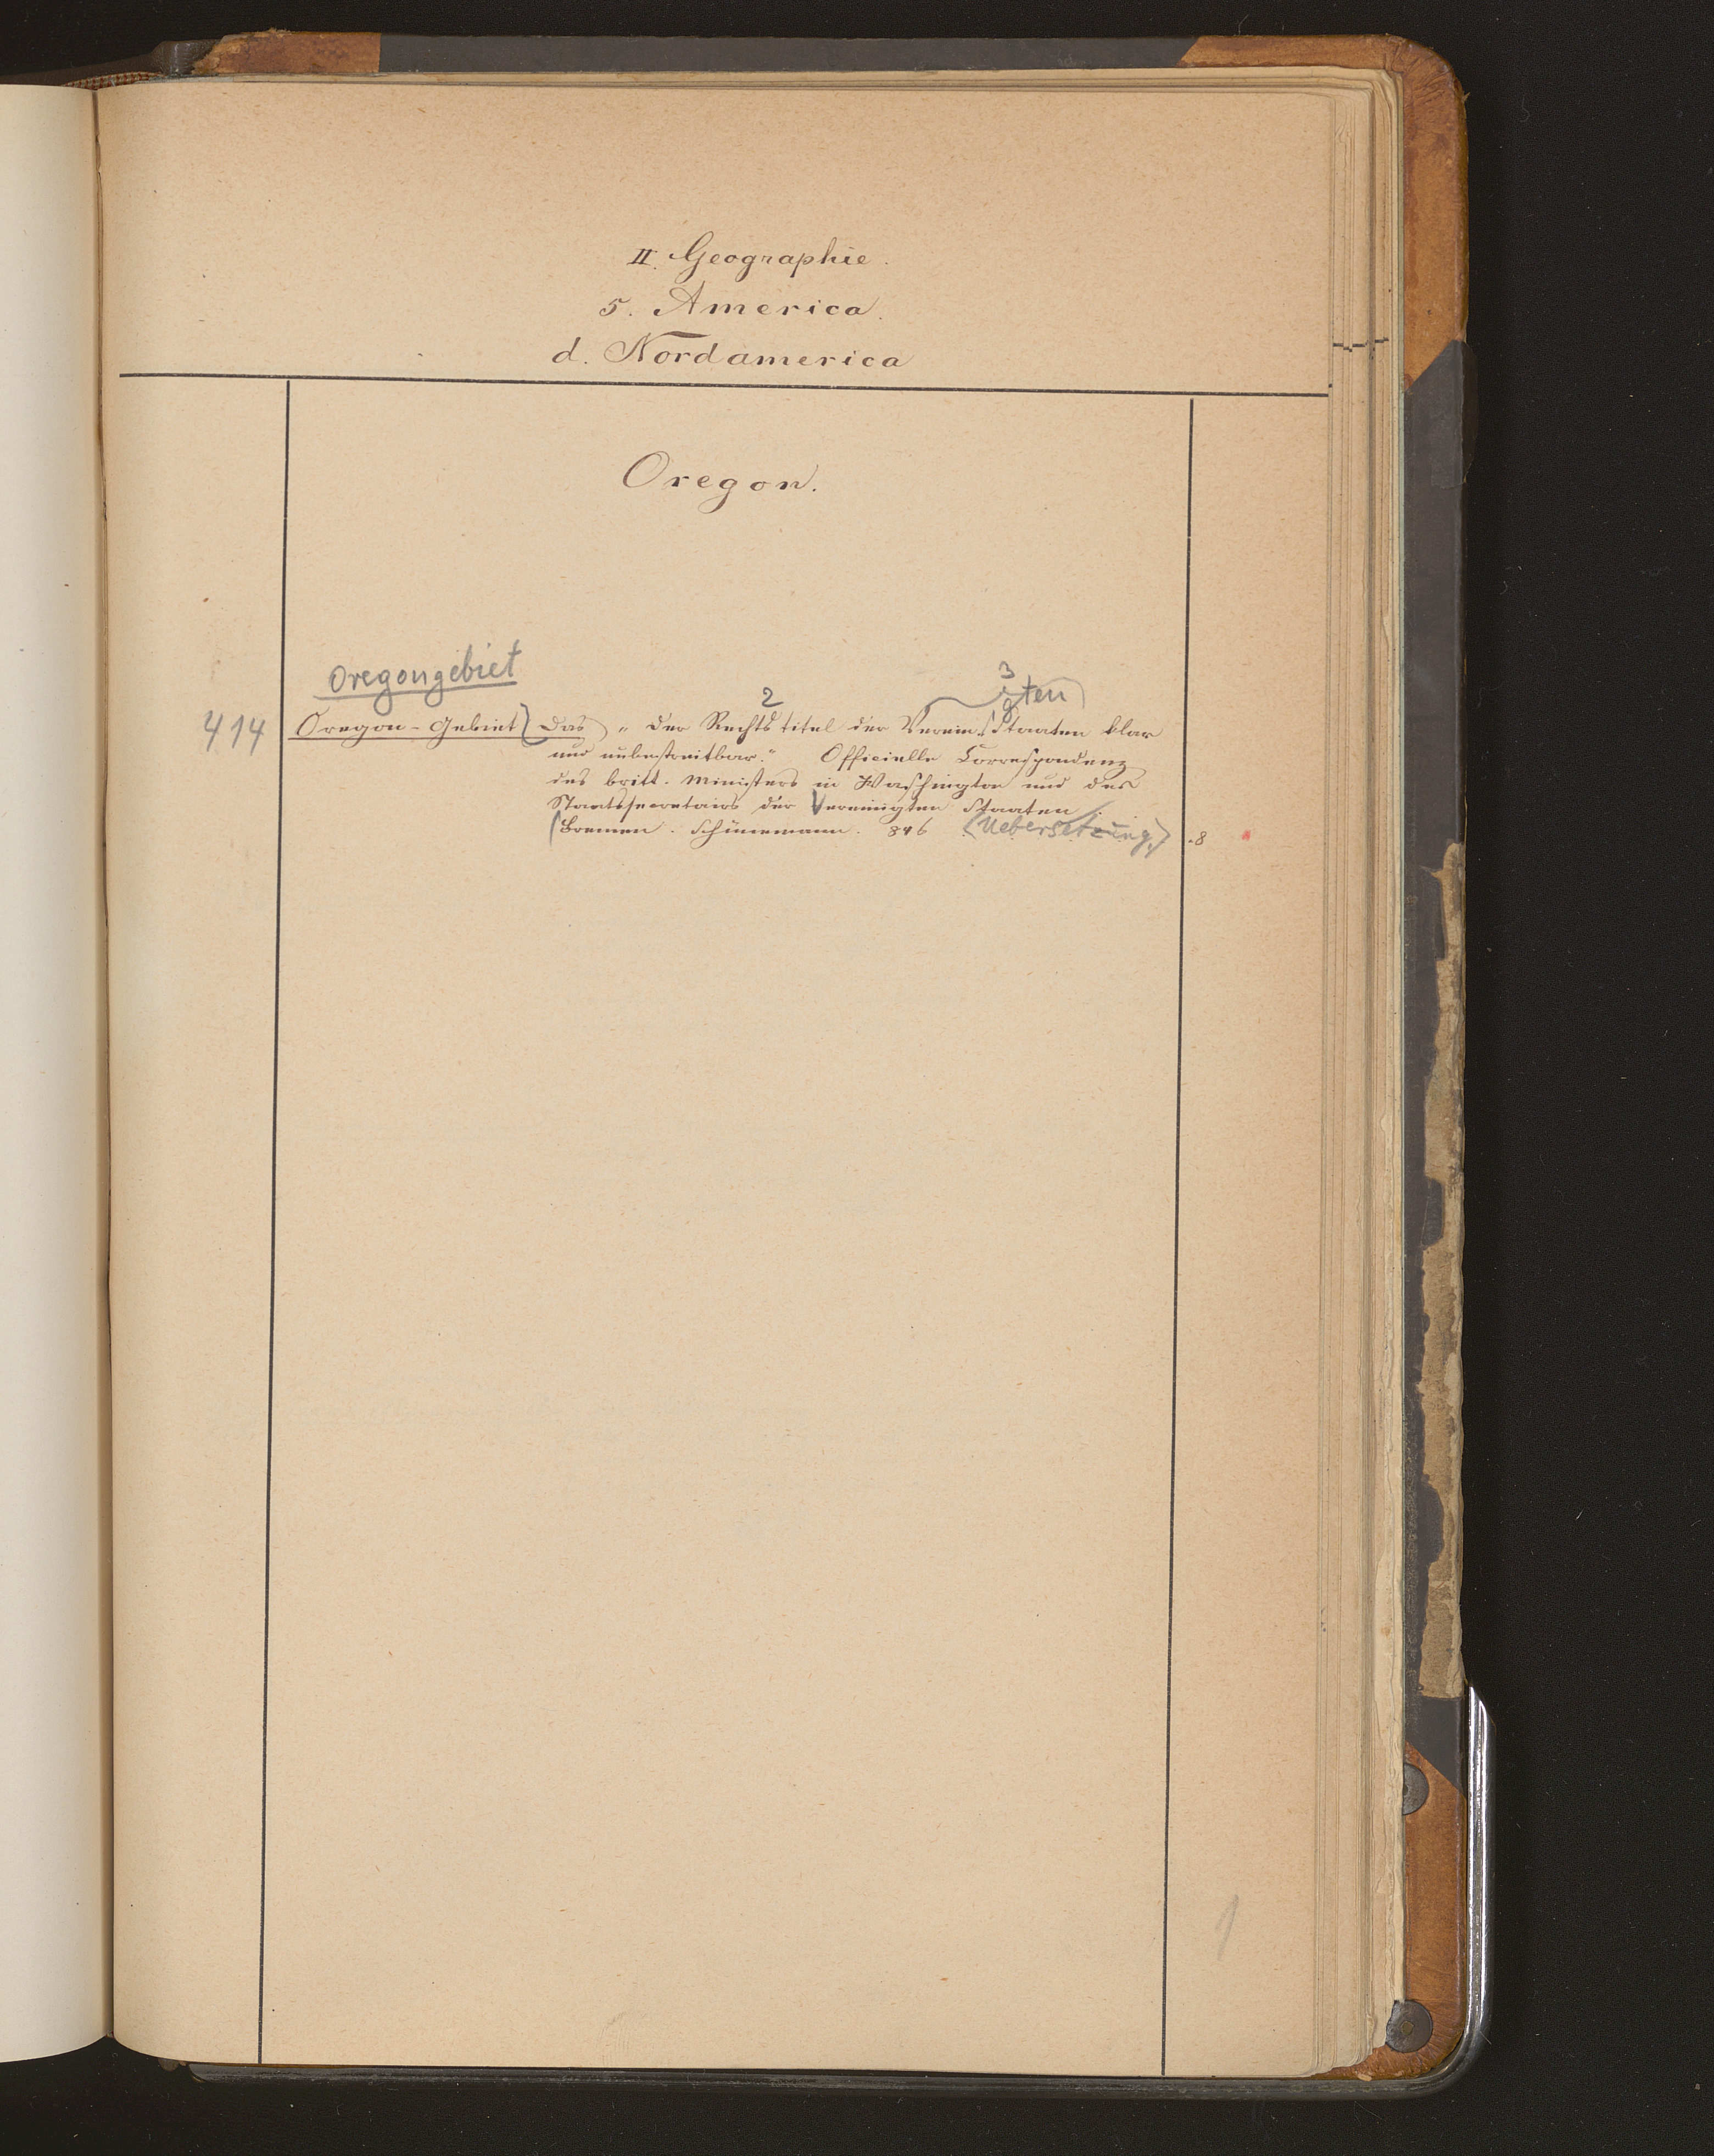 II. Geographie.
5. America.
d. Nordamerica
Oregon.
Oregongebiet
2
3
igten
414 Oregon-Gebiet (Das) „Der Rechtstitel der Verein. Staaten klar
und unbestreitbar." Officielle Correspondenz
des britt. Ministers in Washington und des
Staatssecretairs der Vereinigten Staaten.
(Bremen. Schünemann. 846 (Uebersetzung) .8
1